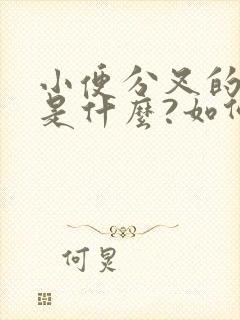 小便分叉的
是什麼?如
何炅